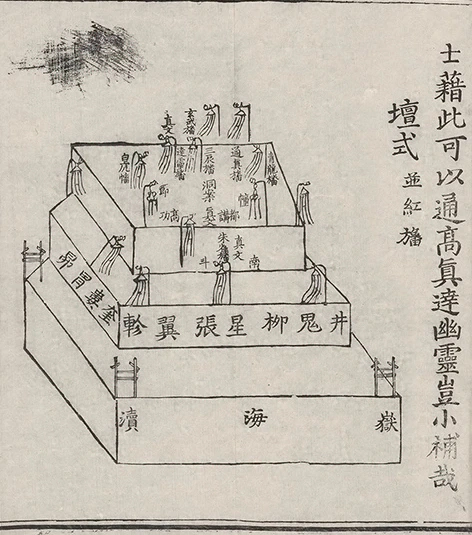 士藉此可以通高眞達幽靈豈小補哉
壇式 並紅旛
玄武旛
真文
通真旛
三辰旛
達靈旛
白虎旛
洞案
幢
節
都講
高功
真文
南斗
井鬼柳星張翼軫
奎婁胃昴
嶽海瀆